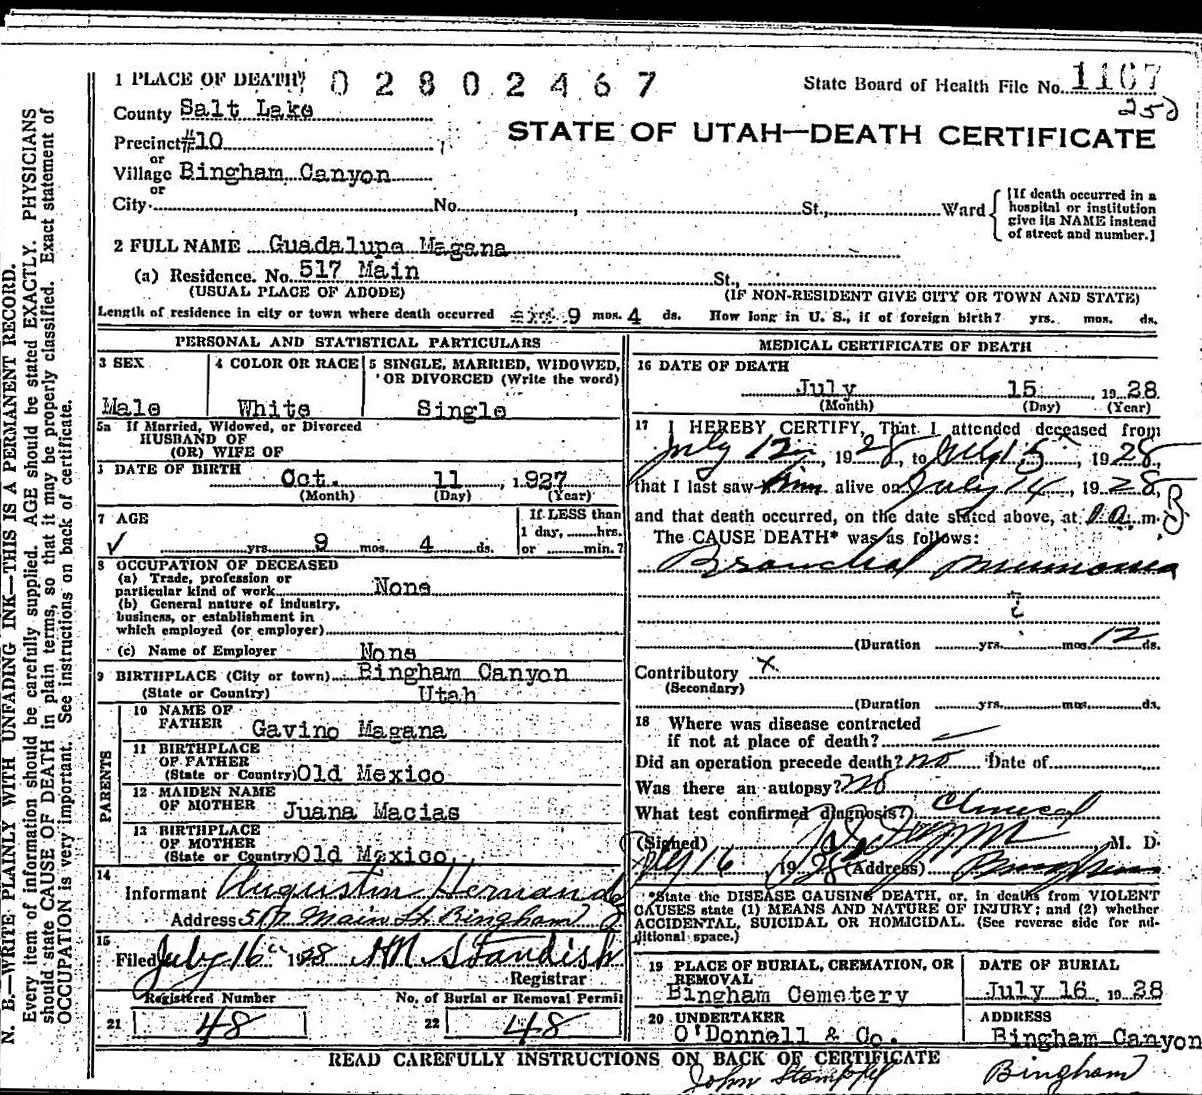 1 PLACE OF DEATH 02802467
State Board of Health File No. 1167
County Salt Lake
Precinct #10
STATE OF UTAH—DEATH CERTIFICATE
or
Village Bingham Canyon
or
City No. St., Ward
[If death occurred in a
hospital or institution
give its NAME instead
of street and number.]
2 FULL NAME Guadalupa Magana
(a) Residence. No. 517 Main St.,
(USUAL PLACE OF ABODE) (IF NON-RESIDENT GIVE CITY OR TOWN AND STATE)
Length of residence in city or town where death occurred yrs. 9 mos. 4 ds. How long in U. S., if of foreign birth? yrs. mos. ds.
PERSONAL AND STATISTICAL PARTICULARS
3 SEX
Male
4 COLOR OR RACE
White
5 SINGLE, MARRIED, WIDOWED,
OR DIVORCED (Write the word)
Single
5a If Married, Widowed, or Divorced
HUSBAND OF
(OR) WIFE OF
DATE OF BIRTH
Oct. 11, 1927
(Month) (Day) (Year)
7 AGE
yrs. 9 mos. 4 ds.
If LESS than
1 day, hrs.
or min.?
8 OCCUPATION OF DECEASED
(a) Trade, profession or
particular kind of work None
(b) General nature of industry,
business, or establishment in
which employed (or employer)
(c) Name of Employer None
9 BIRTHPLACE (City or town) Bingham Canyon
(State or Country) Utah
PARENTS
10 NAME OF
FATHER Gavino Magana
11 BIRTHPLACE
OF FATHER
(State or Country) Old Mexico
12 MAIDEN NAME
OF MOTHER Juana Macias
13 BIRTHPLACE
OF MOTHER
(State or Country) Old Mexico
14
Informant Augustin Hernandez
Address 517 Main St. Bingham
15
Filed July 16 1928 Standish
Registrar
Registered Number
21 48
No. of Burial or Removal Permit
22 48
MEDICAL CERTIFICATE OF DEATH
16 DATE OF DEATH
July 15, 1928
(Month) (Day) (Year)
17 I HEREBY CERTIFY, That I attended deceased from
July 12, 1928, to July 15, 1928,
that I last saw him alive on July 14, 1928,
and that death occurred, on the date stated above, at 1 a. m.
The CAUSE DEATH* was as follows:
Bronchial pneumonia
(Duration yrs. mos. 12 ds.
Contributory x
(Secondary)
(Duration yrs. mos. ds.
18 Where was disease contracted
if not at place of death?
Did an operation precede death? no Date of
Was there an autopsy? no
What test confirmed diagnosis? Clinical
(Signed) M. D.
July 16 1928 (Address) Bingham
*State the DISEASE CAUSING DEATH, or, in deaths from VIOLENT
CAUSES state (1) MEANS AND NATURE OF INJURY; and (2) whether
ACCIDENTAL, SUICIDAL OR HOMICIDAL. (See reverse side for ad-
ditional space.)
19 PLACE OF BURIAL, CREMATION, OR
REMOVAL
Bingham Cemetery
DATE OF BURIAL
July 16, 1928
20 UNDERTAKER
O'Donnell & Co.
ADDRESS
Bingham Canyon
READ CAREFULLY INSTRUCTIONS ON BACK OF CERTIFICATE
John Bingham
N. B.—WRITE PLAINLY WITH UNFADING INK—THIS IS A PERMANENT RECORD.
Every item of information should be carefully supplied. AGE should be stated EXACTLY. PHYSICIANS
should state CAUSE OF DEATH in plain terms, so that it may be properly classified. Exact statement of
OCCUPATION is very important. See instructions on back of certificate.